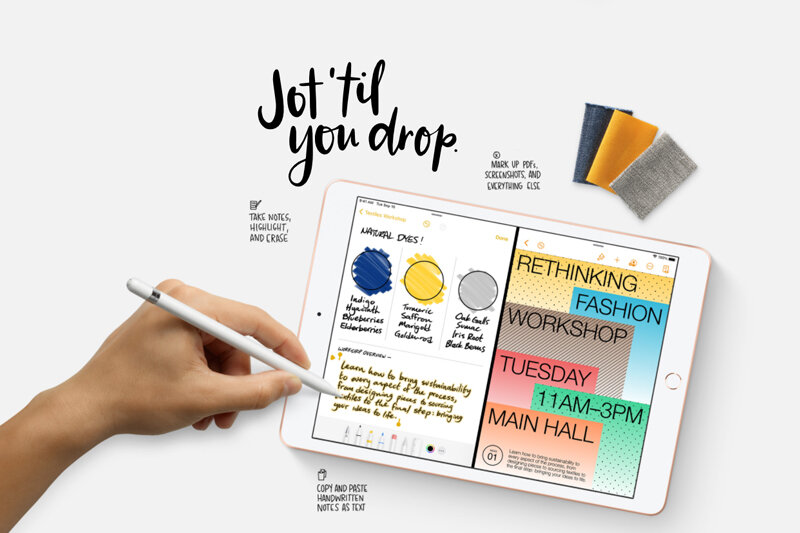 Jot 'til
you drop.
MARK UP PDFs,
SCREENSHOTS, AND
EVERYTHING ELSE
TAKE NOTES,
HIGHLIGHT,
AND ERASE
9:41 AM Tue Sep 15
Textiles Workshop
Done
NATURAL DYES!
Indigo
Hyacinth
Blueberries
Elderberries
Turmeric
Saffron
Marigold
Goldenrod
Oak Galls
Sumac
Iris Root
Black Beans
WORKSHOP OVERVIEW —
Learn how to bring sustainability
to every aspect of the process,
from designing pieces to sourcing
textiles to the final step: bringing
your ideas to life.
100%
RETHINKING
FASHION
WORKSHOP
TUESDAY
11AM–3PM
MAIN HALL
01
Learn how to bring sustainability to
every aspect of the process, from
designing pieces to sourcing textiles to
the final step: bringing your ideas to life.
COPY AND PASTE
HANDWRITTEN
NOTES AS TEXT